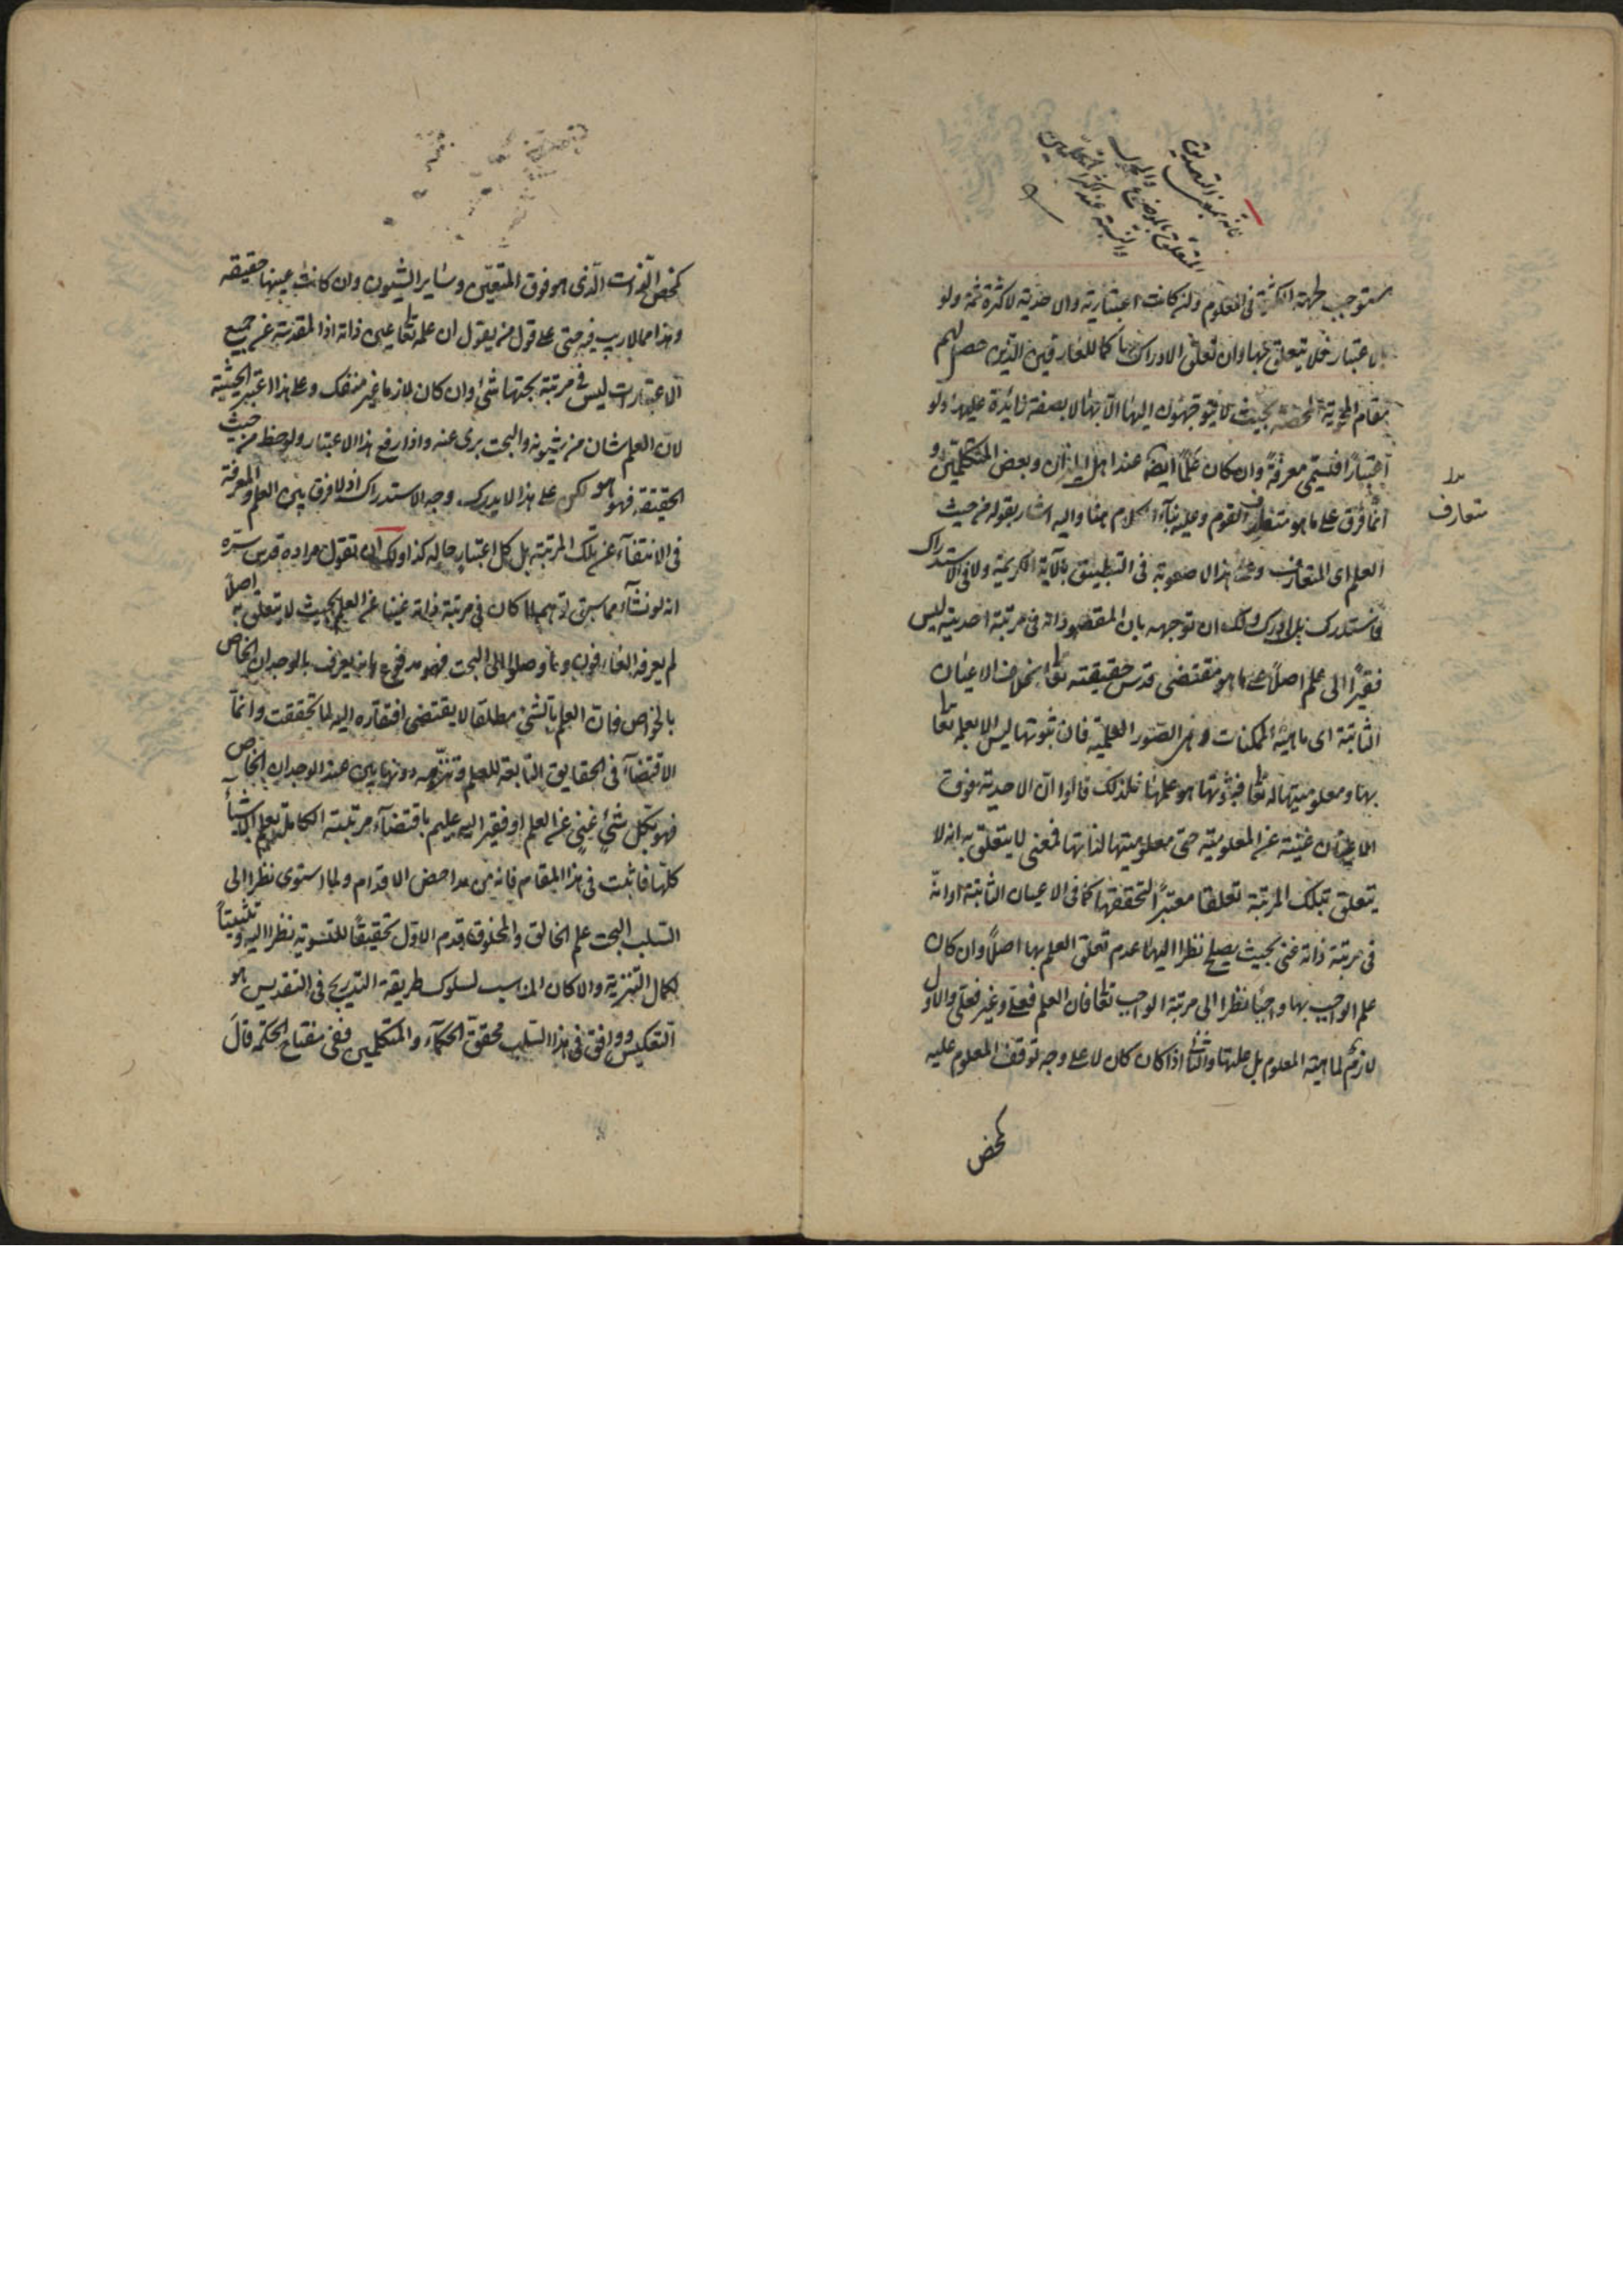 فانه بمعنى التصديق
المتعلق بالموضوع والمحمول
والنسبة عند اكثر المتكلمين
يستوجب لجهة الكثرة في المعلوم ولو كانت اعتبارية والاحدية لا كثرة ثمة ولو
بالاعتبار فلا يتعلق بها وان تعلق الادراك بها كما للعارفين الذين حصل لهم
مقام الهوية المحضة بحيث لا يتوجهون اليها الا بها لا بصفة زائدة عليها ولو
اعتبارا فتسمى معرفة وان كان علما ايضا عند اهل الميزان وبعض المتكلمين و
انما فرق على ما هو متعارف القوم وعليه بناء الكلام هنا واليه اشار بقوله من حيث
متعارف
العلم اى المتعارف وعلى هذا لا صعوبة في التطبيق بالآية الكريمة ولا في الاستدراك
فاستدرك بل ادرك ولك ان توجهه بان المقصود ذاته في مرتبة احديته ليس
فقيرا الى علم اصلا على ما هو مقتضى قدس حقيقته تعالى بخلاف الاعيان
الثابتة اى ماهية الممكنات وهى الصور العلمية فان ثبوتها ليس الا بعلمه تعالى
بها ومعلوميتها له تعالى فثبوتها هو علمها فلذلك قالوا ان الاحدية فوق
الاعيان غنية عن المعلومية حتى معلوميتها لذاتها فمعنى لا يتعلق به انه لا
يتعلق بتلك المرتبة تعلقا معتبرا لتحققها كما في الاعيان الثابتة او انه
في مرتبة ذاته غنى بحيث يصلح نظرا اليها عدم تعلق العلم بها اصلا وان كان
علم الواجب بها واجبا نظرا الى مرتبة الواجب تعالى فان العلم فعلى وغير فعلى والاول
لازم لماهية المعلوم بل علتها والثانى اذا كان كان لا على وجه توقف المعلوم عليه
كمحض
كمحض الذات الذى هو فوق المتعين وساير الشيون وان كانت عينها حقيقة
وهذا مما لا ريب فيه حتى على قول من يقول ان علمه تعالى عين ذاته اذ المقدسة عن جميع
الاعتبارات ليس في مرتبة بحتها شئ وان كان لازما غير منفك وعلى هذا اعتبر الحيثية
لان العلم شان من شيونه والبحت برى عنه واذا رفع هذا الاعتبار ولوحظ من حيث
الحقيقة فهو هو لكن على هذا لا يدرك وجه الاستدراك اذ لا فرق بين العلم والمعرفة
في الانتفاء عن تلك المرتبة بل كل اعتبار حاله كذا ولك ان تقول مراده قدس سره
انه لو نشاء مما سبق توهم لما كان في مرتبة ذاته غنيا عن العلم بحيث لا يتعلق به اصلا
لم يعرفه العارفون وما وصلوا الى البحت فهو مدفوع بانه يعرف بالوجدان الخاص
بالخواص فان العلم بالشئ مطلقا لا يقتضى افتقاره اليه لما تحققت وانما
الاقتضاء في الحقايق التابعة للعلم وتنزهه دونها يبين عند الوجدان الخاص
فهو بكل شئ غنى عن العلم او فقير اليه عليم باقتضاء مرتبته الكاملة تعلم الاشياء
كلها فاثبت في هذا المقام فانه من مداحض الاقدام ولما استوى نظرا الى
السلب البحت علم الخالق والمخلوق قدم الاول تحقيقا للتسوية نظرا اليه وتثبيتا
لكمال التنزيه والا كان المناسب لسلوك طريقة التدريج في التقديس هو
التعكيس ووافق في هذا السلب محققى الحكماء والمتكلمين ففى مفتاح الحكمة قال